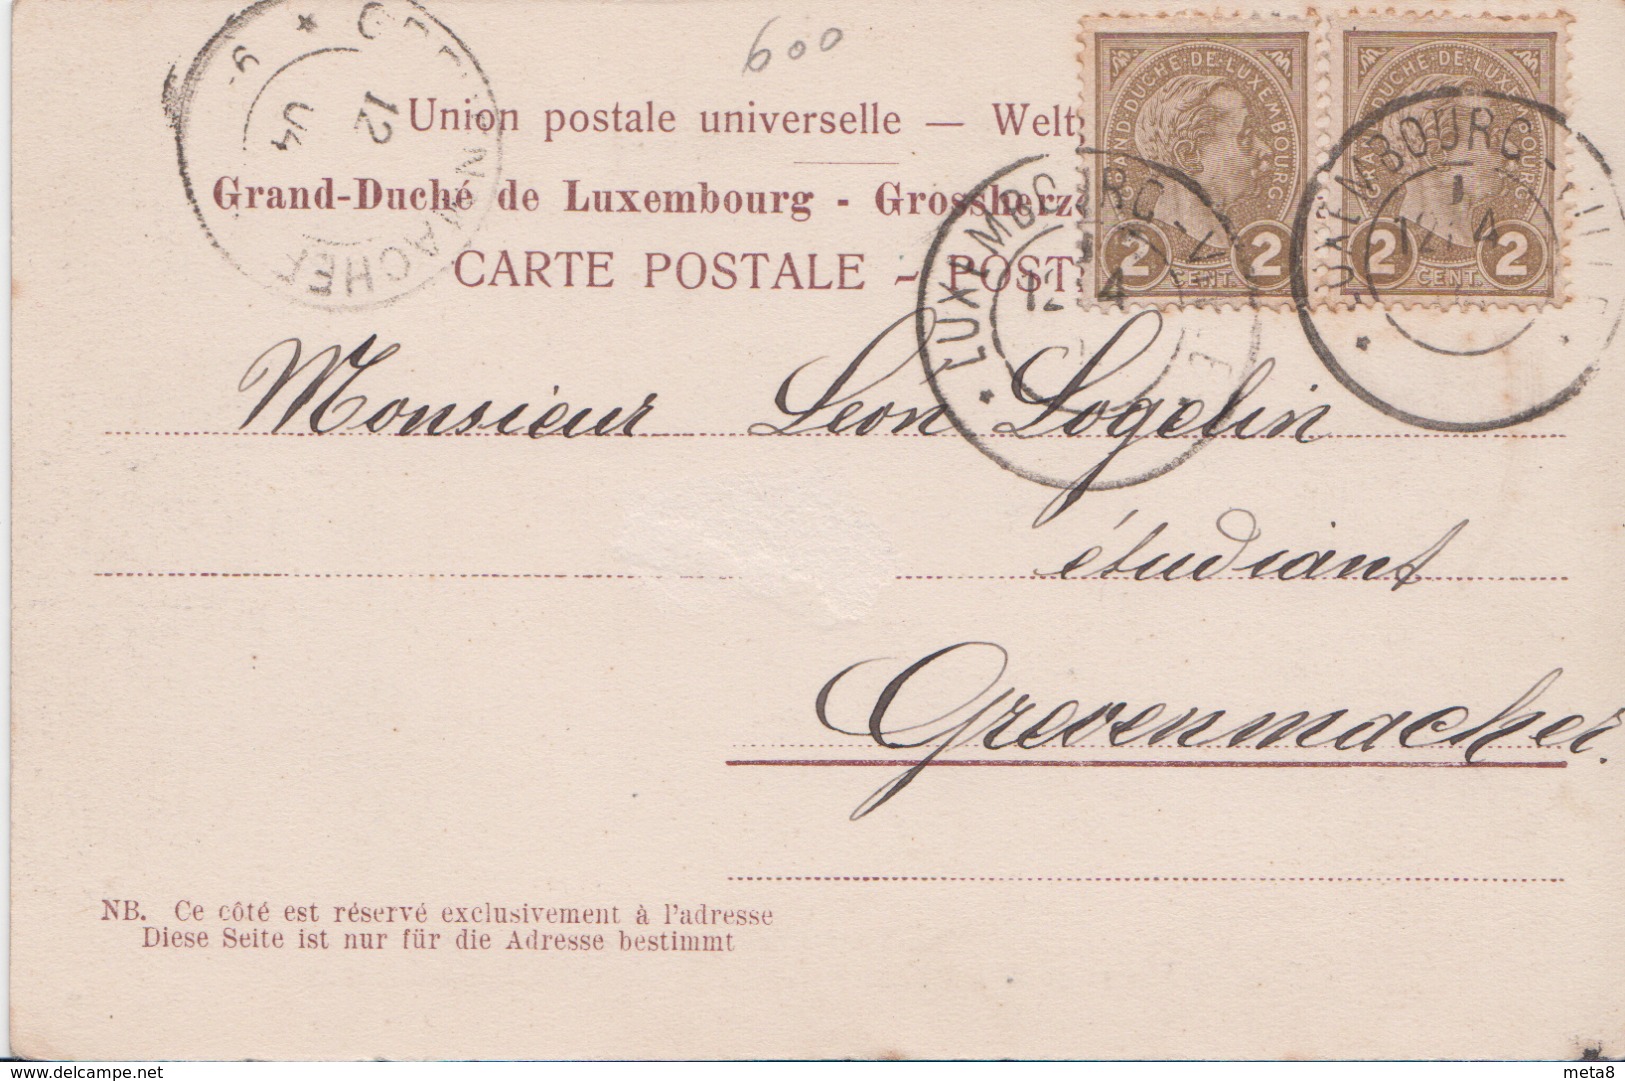 600
Union postale universelle — Welt
Grand-Duché de Luxembourg - Grossherz
CARTE POSTALE - POST
GRAND-DUCHÉ-DE-LUXEMBOURG
2 CENT. 2
GRAND-DUCHÉ-DE-LUXEMBOURG
2 CENT. 2
12
04
LUXEMBOURG - VILLE
12 4
LUXEMBOURG - VILLE
12 4
Monsieur Léon Logelin
étudiant
Grevenmacher.
NB. Ce côté est réservé exclusivement à l'adresse
Diese Seite ist nur für die Adresse bestimmt
www.delcampe.net
meta8